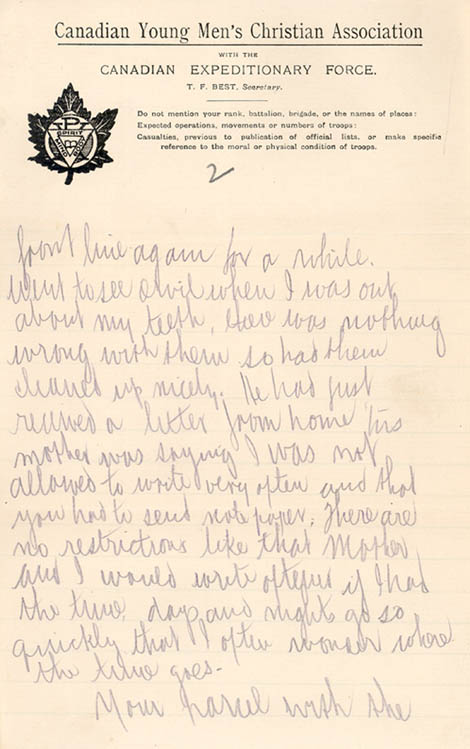 Canadian Young Men's Christian Association
WITH THE
CANADIAN EXPEDITIONARY FORCE.
T. F. BEST, Secretary.
Do not mention your rank, battalion, brigade, or the names of places:
Expected operations, movements or numbers of troops:
Casualties, previous to publication of official lists, or make specific
reference to the moral or physical condition of troops.
SPIRIT
MIND
BODY
2
front line again for a while.
Went to see when I was out
about my teeth, there was nothing
wrong with them so had them
cleaned up nicely. He had just
received a letter from home, his
mother was saying I was not
allowed to write very often and that
you had to send note paper. There are
no restrictions like that Mother
and I would write oftener if I had
the time, days and nights go so
quickly that I often wonder where
the time goes-
Your parcel with the